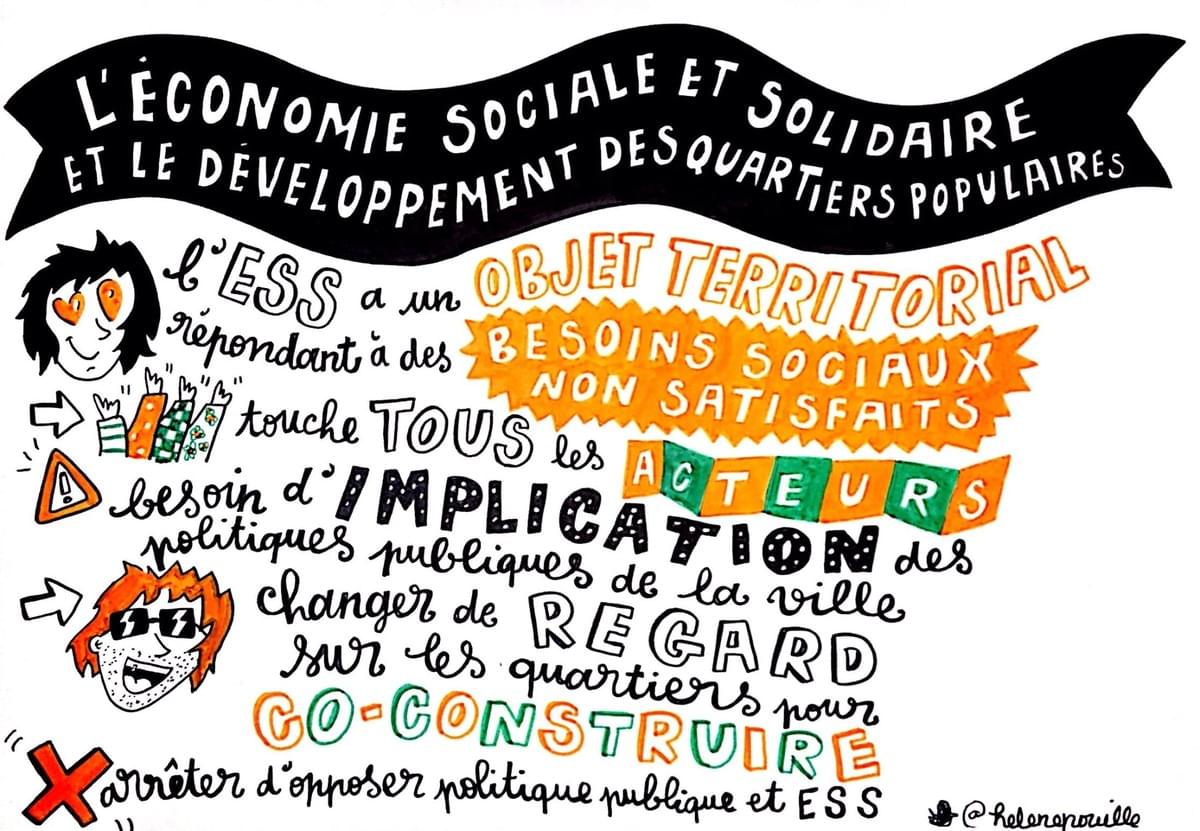 L'ÉCONOMIE SOCIALE ET SOLIDAIRE
ET LE DÉVELOPPEMENT DES QUARTIERS POPULAIRES
l'ESS a un OBJET TERRITORIAL
répondant à des BESOINS SOCIAUX
NON SATISFAITS
touche TOUS les ACTEURS
besoin d'IMPLICATION des
politiques publiques de la ville
changer de REGARD
sur les quartiers pour
CO-CONSTRUIRE
arrêter d'opposer politique publique et ESS
@helenepouille